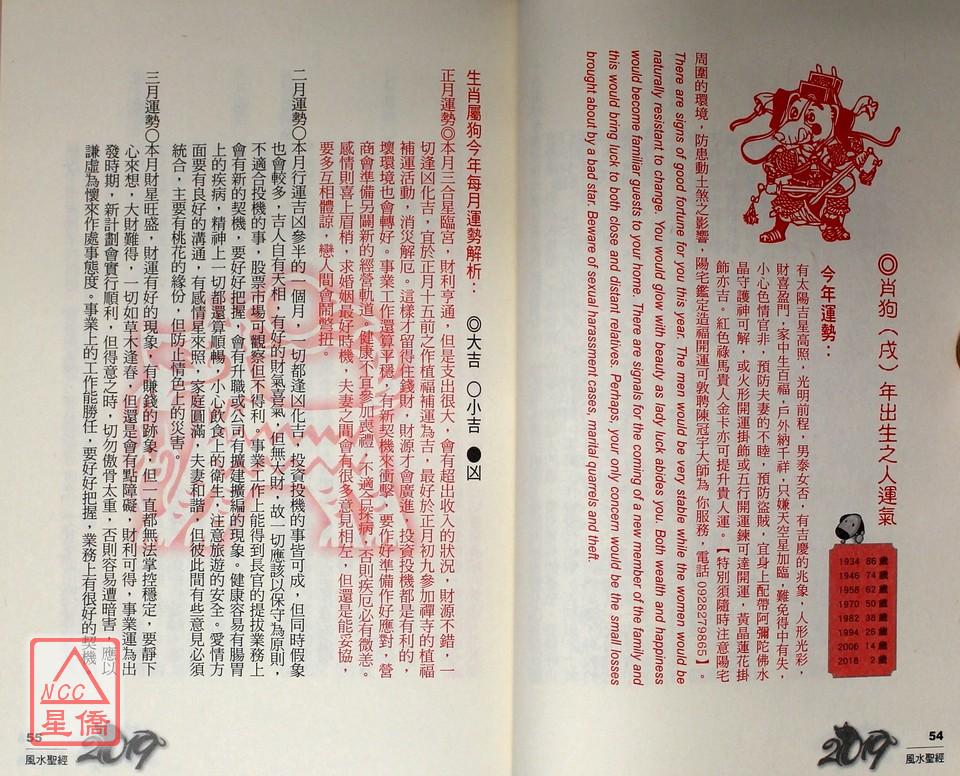 ◎肖狗（戌）年出生之人運氣
1934 86歲
1946 74歲
1958 62歲
1970 50歲
1982 38歲
1994 26歲
2006 14歲
2018 2歲
今年運勢：
有太陽吉星高照，光明前程，男泰女否，有吉慶的兆象，人形光彩，
財喜盈門，家中生百福，戶外納千祥，只嫌天空星加臨，難免得中有失，
小心色情官非，預防夫妻的不睦，預防盜賊，宜身上配帶阿彌陀佛水
晶守護神可解，或火形開運掛飾或五行開運鍊可達開運，黃晶蓮花掛
飾亦吉。紅色祿馬貴人金卡亦可提升貴人運。【特別須隨時注意陽宅
周圍的環境，防患動土煞之影響，陽宅鑑定造福開運可敦聘陳冠宇大師為 你服務，電話0928279865】。
There are signs of good fortune for you this year. The men would be very stable while the women would be
naturally resistant to change. You would glow with beauty as lady luck abides you. Both wealth and happiness
would become familiar guests to your home. There are signals for the coming of a new member of the family and
this would bring luck to both close and distant relatives. Perhaps, your only concern would be the small losses
brought about by a bad star. Beware of sexual harassment cases, marital quarrels and theft.
54
風水聖經
2019
生肖屬狗今年每月運勢解析： ◎大吉 ○小吉 ●凶
正月運勢◎本月三合星臨宮，財利亨通，但是支出很大，會有超出收入的狀況，財源不錯，一
切逢凶化吉，宜於正月十五前之作植福補運為吉，最好於正月初九參加禪寺的植福
補運活動，消災解厄。這樣才留得住錢財，財源才會廣進，投資投機都是有利的，
壞環境也會轉好。事業工作還算平穩，有新契機來衝擊，要作好準備作好應對，營
商會準備另闢新的經營軌道，健康不宜參加喪禮，不適合探病，否則疾厄必有微恙。
感情則喜上眉梢，求婚姻最好時機，夫妻之間會有很多意見相左，但還是能妥協，
要多互相體諒，戀人間會鬧彆扭。
二月運勢○本月行運吉凶參半的一個月，一切都逢凶化吉，投資投機的事皆可成，但同時假象
也會較多，吉人自有天相，有好的財氣喜氣，但無大財，故一切應該以保守為原則，
不適合投機的事，股票市場可觀察但不得利，事業工作上能得到長官的提拔業務上
會有新的契機，要好好把握，會有升職或公司有擴建擴編的現象。健康容易有腸胃
上的疾病，精神上一切都還算順暢，小心飲食上的衛生，注意旅遊的安全。愛情方
面要有良好的溝通，有感情星來照，家庭圓滿，夫妻和諧，但彼此間有些意見必須
統合，主要有桃花的緣份，但防止情色上的災害。
三月運勢○本月財星旺盛，財運有好的現象，有賺錢的跡象，但一直都無法掌控穩定，要靜下
心來想，大財難得，一切如草木逢春，但還是會有點障礙，財利可得，事業運為出
發時期，新計劃會實行順利，但得意之時，切勿傲骨太重，否則容易遭暗害，應以
謙虛為懷來作處事態度。事業上的工作能勝任，要好好把握，業務上有很好的契機
55
風水聖經
2019
NCC
星僑